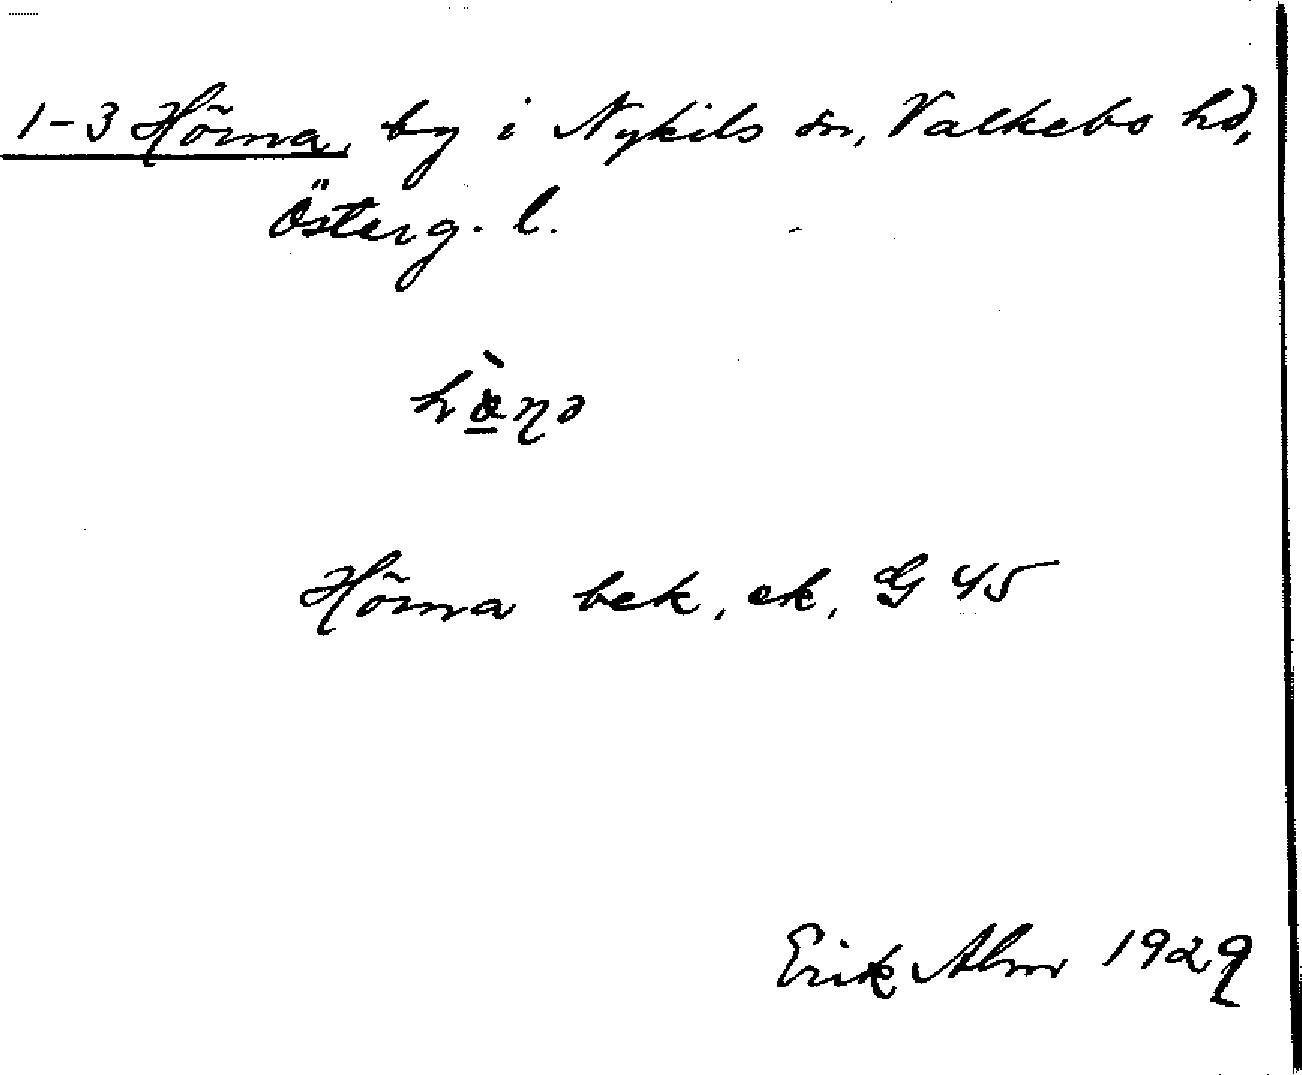 1-3 Hörna, by i Nykils sn, Valkebo hd,
Österg. l.
Hörna bek. ek. G 45
Erik Alm 1929